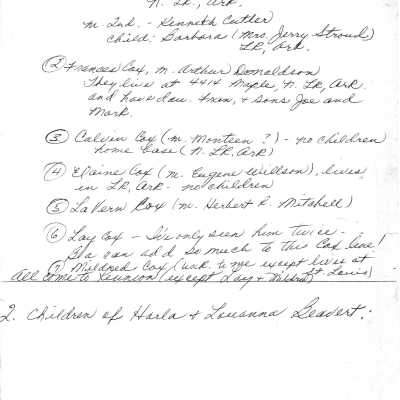 N. LR., Ark.
m. 2nd. - Kenneth Cutler
child: Barbara (Mrs. Jerry Stroud)
LR, Ark.
② Frances Cox, m. Arthur Donaldson
They live at 4414 Maple, N. LR, Ark.
and have dau. Ann, & sons Joe and
Mark.
③ Calvin Cox (m. Monteen ?) - no children
home base (N. LR, Ark)
④ Elaine Cox (m. Eugene Wellson), lives
in LR, Ark - no children
⑤ LaVern Cox (m. Herbert R. Mitchell)
⑥ Lay Cox - I've only seen him twice -
Ila can add so much to this Cox line!
⑦ Mildred Cox (unk to me except lives at
St. Louis)
All come to reunion (except Lay & Mildred)
2. Children of Harla & Louanna Beavert: